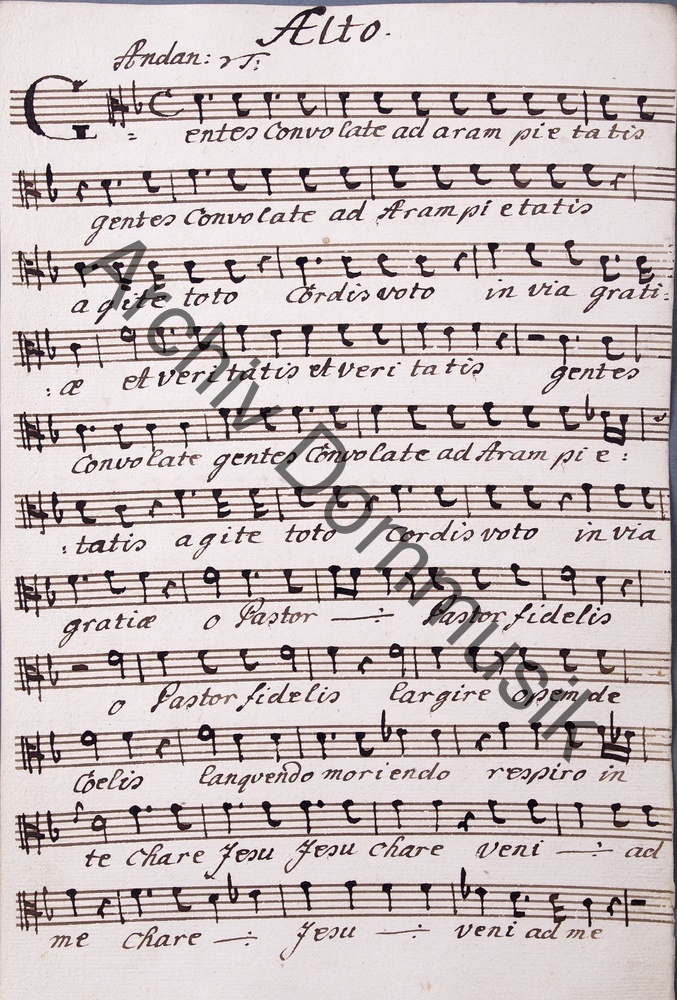 Ælto.
Andan: te:
Gentes Convolate ad aram pie tatis
gentes Convolate ad Aram pi etatis
agite toto Cordis voto in via grati:
:æ et veri tatis et veri tatis gentes
Convolate gentes Convolate ad Aram pi e:
:tatis agite toto Cordis voto in via
gratiæ o Pastor —:— Pastor fidelis
o Pastor fidelis largire opem de
Coelis lanquendo moriendo respiro in
te Chare Jesu Jesu Chare veni —:— ad
me Chare —:— Jesu —:— veni ad me
Archiv Dommusik